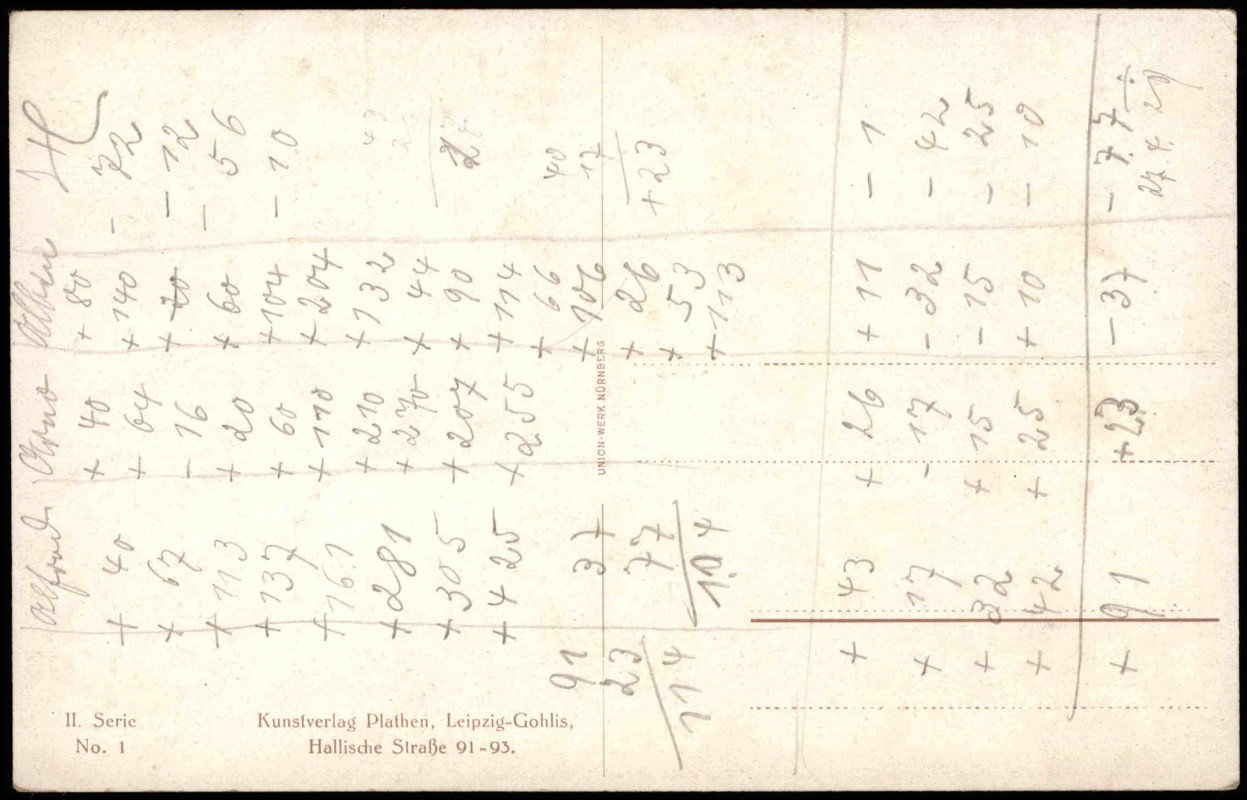 Alfred Arno
+ 40 + 40 + 80 - 22
+ 67 + 64 + 140 - 12
+ 113 - 16 + 70 - 56
+ 137 + 20 + 60 - 10
+ 161 + 60 + 104
+ 281 + 110 + 204
+ 305 + 210 + 132
+ 425 + 270 + 44
+ 207 + 90
+ 255 + 114
+ 66
+ 106
+ 26
+ 53
+ 113
40
17
+ 23
91
23
114
37
77
104
+ 43 + 26 + 11 - 1
+ 17 - 17 - 32 - 42
+ 32 + 15 - 15 - 25
+ 42 + 25 + 10 - 10
+ 91 + 23 - 37 - 77
II. Serie
No. 1
Kunstverlag Plathen, Leipzig-Gohlis,
Hallische Straße 91-93.
UNION-WERK NÜRNBERG